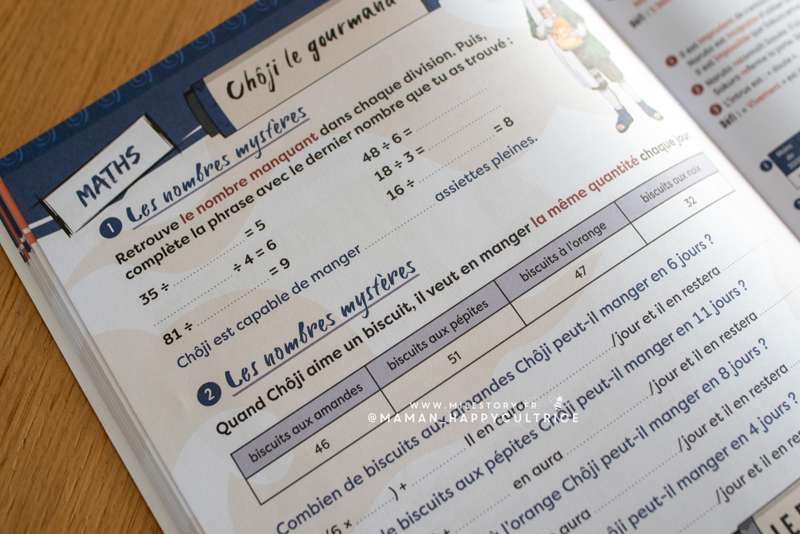 Chôji le gourmand
MATHS
1 Les nombres mystères
Retrouve le nombre manquant dans chaque division. Puis,
complète la phrase avec le dernier nombre que tu as trouvé :
35 ÷ .......... = 5
.......... ÷ 4 = 6
81 ÷ .......... = 9
48 ÷ 6 = ..........
18 ÷ 3 = ..........
16 ÷ .......... = 8
Chôji est capable de manger .......... assiettes pleines.
2 Les nombres mystères
Quand Chôji aime un biscuit, il veut en manger la même quantité chaque jour
biscuits aux amandes biscuits aux pépites biscuits à l'orange biscuits aux noix
46 51 47 32
Combien de biscuits aux amandes Chôji peut-il manger en 6 jours ?
(6 × ..........) + .......... Il en aura .......... /jour et il en restera ..........
de biscuits aux pépites Chôji peut-il manger en 11 jours ?
.......... en aura .......... /jour et il en restera ..........
à l'orange Chôji peut-il manger en 8 jours ?
aura .......... /jour et il en restera
Chôji peut-il manger en 4 jours ?
/jour et il en
WWW.MILESTORY.FR
@MAMAN_HAPPYCULTRICE